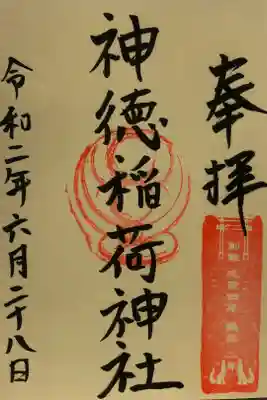 奉拝
神徳稲荷神社
令和二年六月二十八日